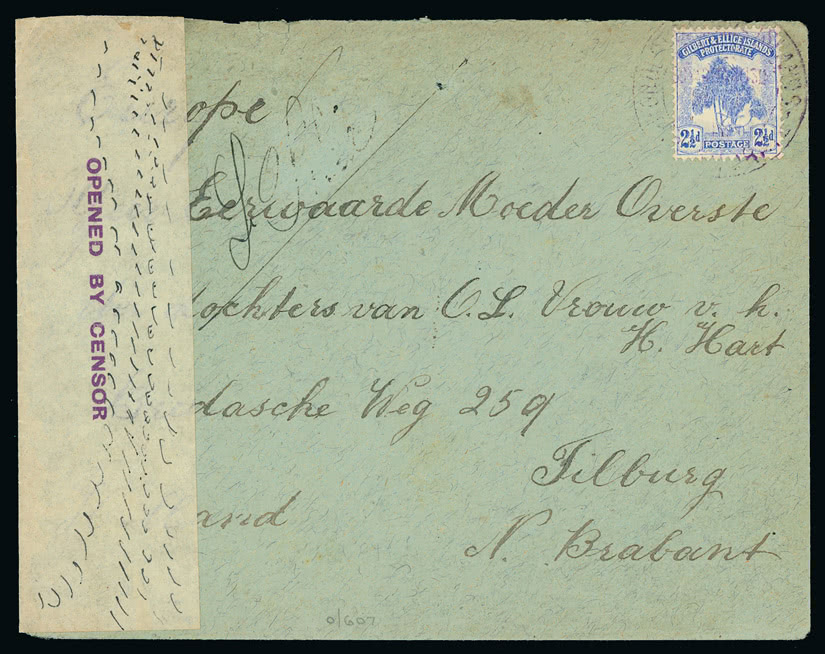 GILBERT & ELLICE ISLANDS
PROTECTORATE
2½d POSTAGE 2½d
OPENED BY CENSOR
ope
Eerwaarde Moeder Overste
dochters van O. L. Vrouw v. h.
H. Hart
dasche Weg 259
Tilburg
and
N. Brabant
0/607